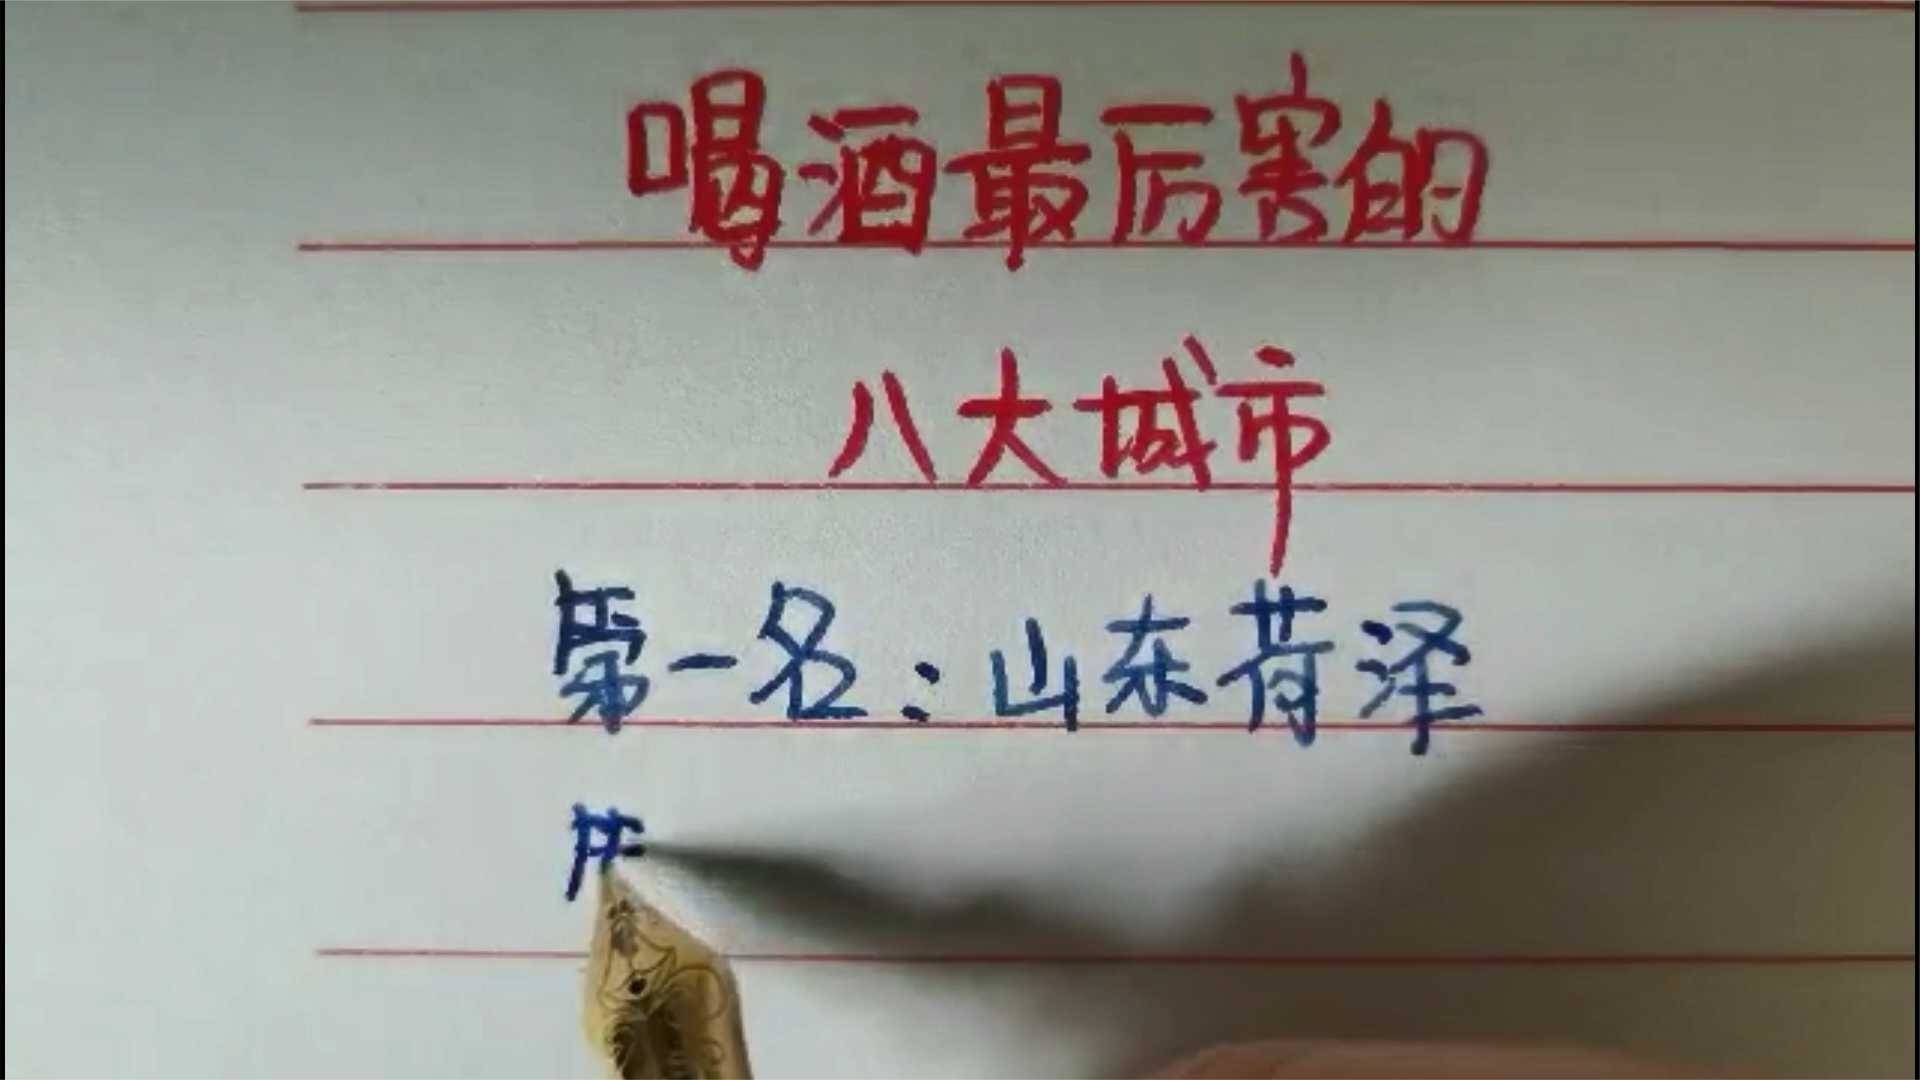 喝酒最厉害的
八大城市
第一名：山东荷泽